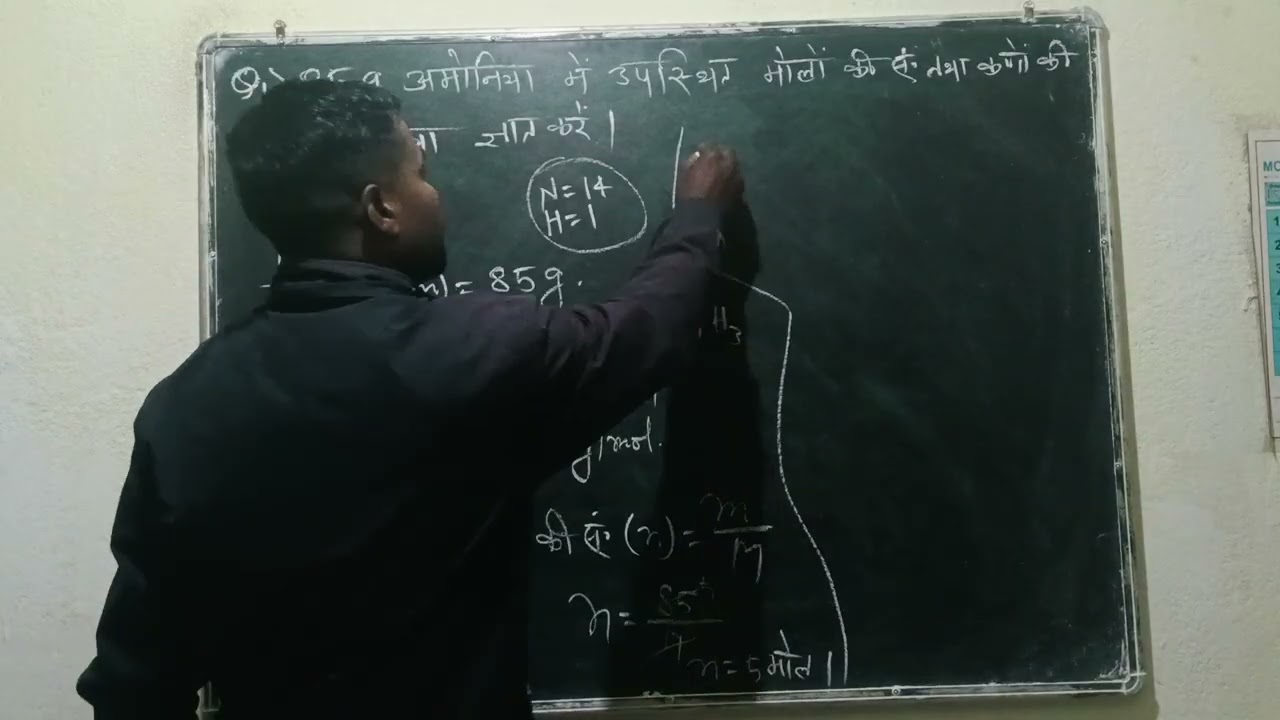 Q.) 85 g अमोनिया में उपस्थित मोलों की सं. तथा कणों की
ज्ञात करें।
N = 14
H = 1
m) = 85 g.
H₃
g/mol.
की सं. (n) = m/M
n = 85⁵/17
n = 5 मोल।
MO
1
2